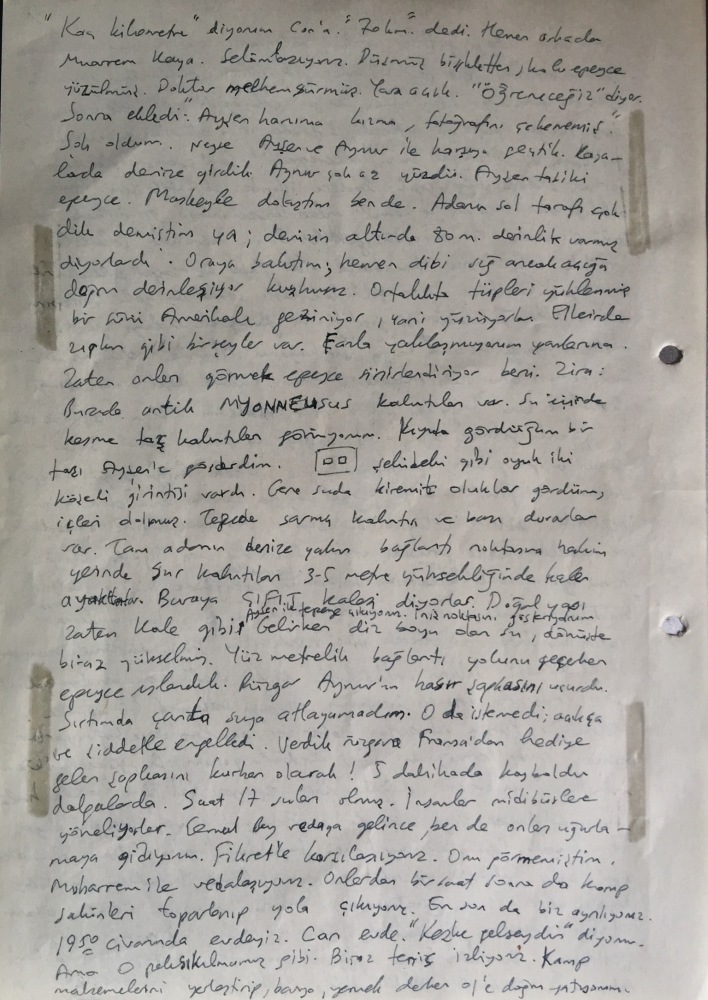 "Kaç kilometre" diyorum Can'a. "7 km." dedi. Hemen arkada
Muarrem Kaya. Selamlaşıyoruz. Düşmüş bisikletten, kolu epeyce
yüzülmüş. Doktor melhem sürmüş. Yara açık. "Öğreneceğiz" diyor.
Sonra ekledi: "Ayşen hanıma kızma, fotoğrafını çekememiş."
Şok oldum. Neyse Ayşen ve Aynur ile karşıya geçtik. Kaya-
larda denize girdik. Aynur çok az yüzdü. Ayşen takiki
epeyce. Maskeyle dolaştım ben de. Adanın sol tarafı çok
dik demiştim ya; denizin altında 80 m. derinlik varmış
diyorlardı. Oraya baktım; hemen dibi sığ ancak açığa
doğru derinleşiyor kuşkusuz. Ortalıkta tüpleri yüklenmiş
bir sürü Amerikalı geziniyor, yani yüzüyorlar. Ellerinde
zıpkın gibi birşeyler var. Fazla yaklaşmıyorum yanlarına.
Zaten onları görmek epeyce sinirlendiriyor beni. Zira:
Burada antik MYONNEUSUS kalıntıları var. Su içinde
kesme taş kalıntıları görüyorum. Kıyıda gördüğüm bir
taşı Ayşen'e gösterdim. şeklindeki gibi oyuk iki
köşeli girintisi vardı. Gene suda kiremit oluklar gördüm,
içleri dolmuş. Tepede sarnıç kalıntısı ve bazı duvarlar
var. Tam adanın denize yakın bağlantı noktasına hakim
yerinde sur kalıntıları 3-5 metre yüksekliğinde halen
ayakta. Buraya ÇIFIT kalesi diyorlar. Doğal yapı
Ayşen'le tepeye çıkıyoruz. İniş noktasını gösteriyorum
zaten kale gibi. Gelirken diz boyu olan su, dönüşte
biraz yükselmiş. Yüz metrelik bağlantı yolunu geçerken
epeyce ıslandık. Rüzgar Aynur'un hasır şapkasını uçurdu.
Sırtımda çanta suya atlayamadım. O da istemedi; açıkça
ve şiddetle engelledi. Verdik rüzgara Fransa'dan hediye
gelen şapkasını kurban olarak! 5 dakikada kayboldu
dalgalarda. Saat 17 suları olmuş. İnsanlar midibüslere
yöneliyorlar. Cemal Bey vedaya gelince, ben de onları uğurla-
maya gidiyorum. Fikretle karşılaşıyoruz. Onu görmemiştim.
Muharrem ile vedalaşıyoruz. Onlardan bir saat sonra da kamp
sakinleri toparlanıp yola çıkıyoruz. En son da biz ayrılıyoruz.
19⁵⁰ civarında evdeyiz. Can evde. "Keşke gelseydin" diyorum.
Ama O pek sıkılmamış gibi. Biraz tenis izliyoruz. Kamp
malzemelerini yerleştirip, banyo, yemek derken 01'e doğru yatıyorum.